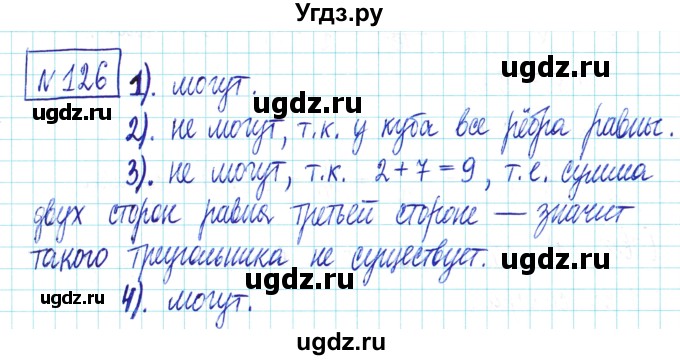 Угдз.ру
№126 1). могут.
2). не могут, т.к. у куба все рёбра равны.
3). не могут, т.к. 2+7=9, т.е. сумма
двух сторон равна третьей стороне — значит
такого треугольника не существует.
4). могут.
ugdz.ru ugdz.ru ugdz.ru
ugdz.ru ugdz.ru ugdz.ru
ugdz.ru ugdz.ru ugdz.ru
ugdz.ru ugdz.ru ugdz.ru